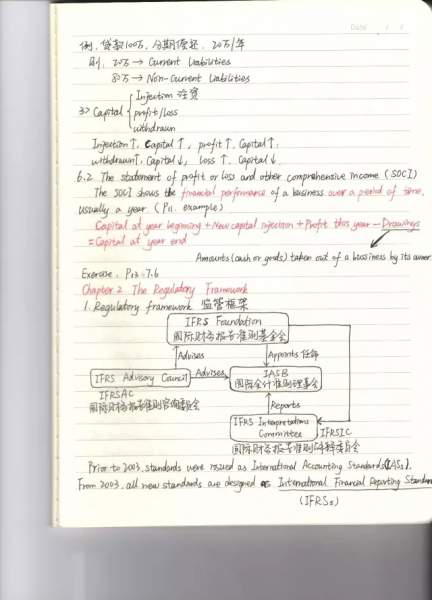 例. 贷款100万, 分期偿还, 20万/年
则: 20万 → Current Liabilities
80万 → Non-Current Liabilities
3> Capital { Injection 注资
profit/loss
withdrawn
Injection↑, Capital↑, profit↑, Capital↑.
withdrawn↑, Capital↓, loss↑, Capital↓.
6.2 The statement of profit or loss and other comprehensive income (SOCI)
The SOCI shows the financial performance of a business over a period of time,
usually a year (P11. example)
Capital at year beginning + New capital injection + Profit this year - Drawings
= Capital at year end
Amounts (cash or goods) taken out of a bussiness by its owner.
Exercise: P13 = 7.6
Chapter 2 The Regulatory Framework
1. Regulatory framework 监管框架
IFRS Foundation
国际财务报告准则基金会
Advises
Appoints 任命
IFRS Advisory Council
Advises
IASB
IFRSAC
国际会计准则理事会
国际财务报告准则咨询委员会
Reports
IFRS Interpretations
Committee
IFRSIC
国际财务报告准则解释委员会
Prior to 2003, standards were issued as International Accounting Standards (IASs).
From 2003, all new standards are designed as International Financial Reporting Standar
(IFRSs)